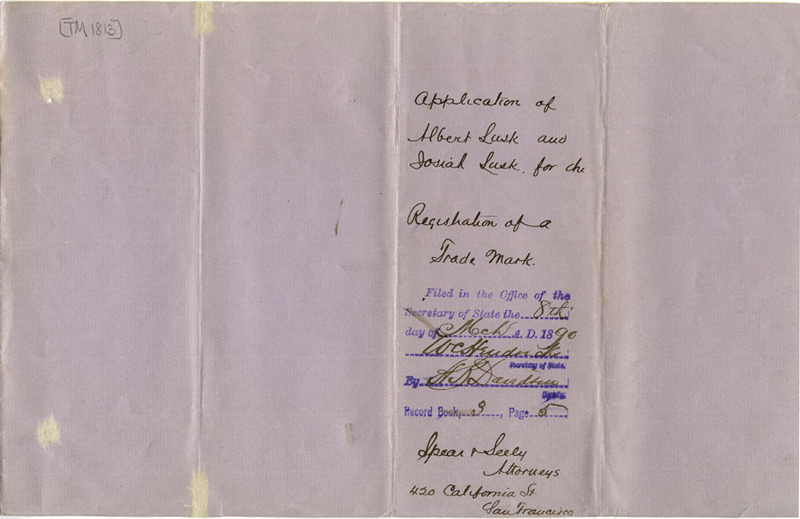 [TM 1813]
Application of
Albert Lusk and
Josiah Lusk. for the
Registration of a
Trade Mark.
Filed in the Office of the
Secretary of State the 8th
day of Mch A. D. 1890
W C Hendricks
Secretary of State.
By
Deputy.
Record Book, 3, Page 5
Spear & Seely
Attorneys
420 California St
San Francisco